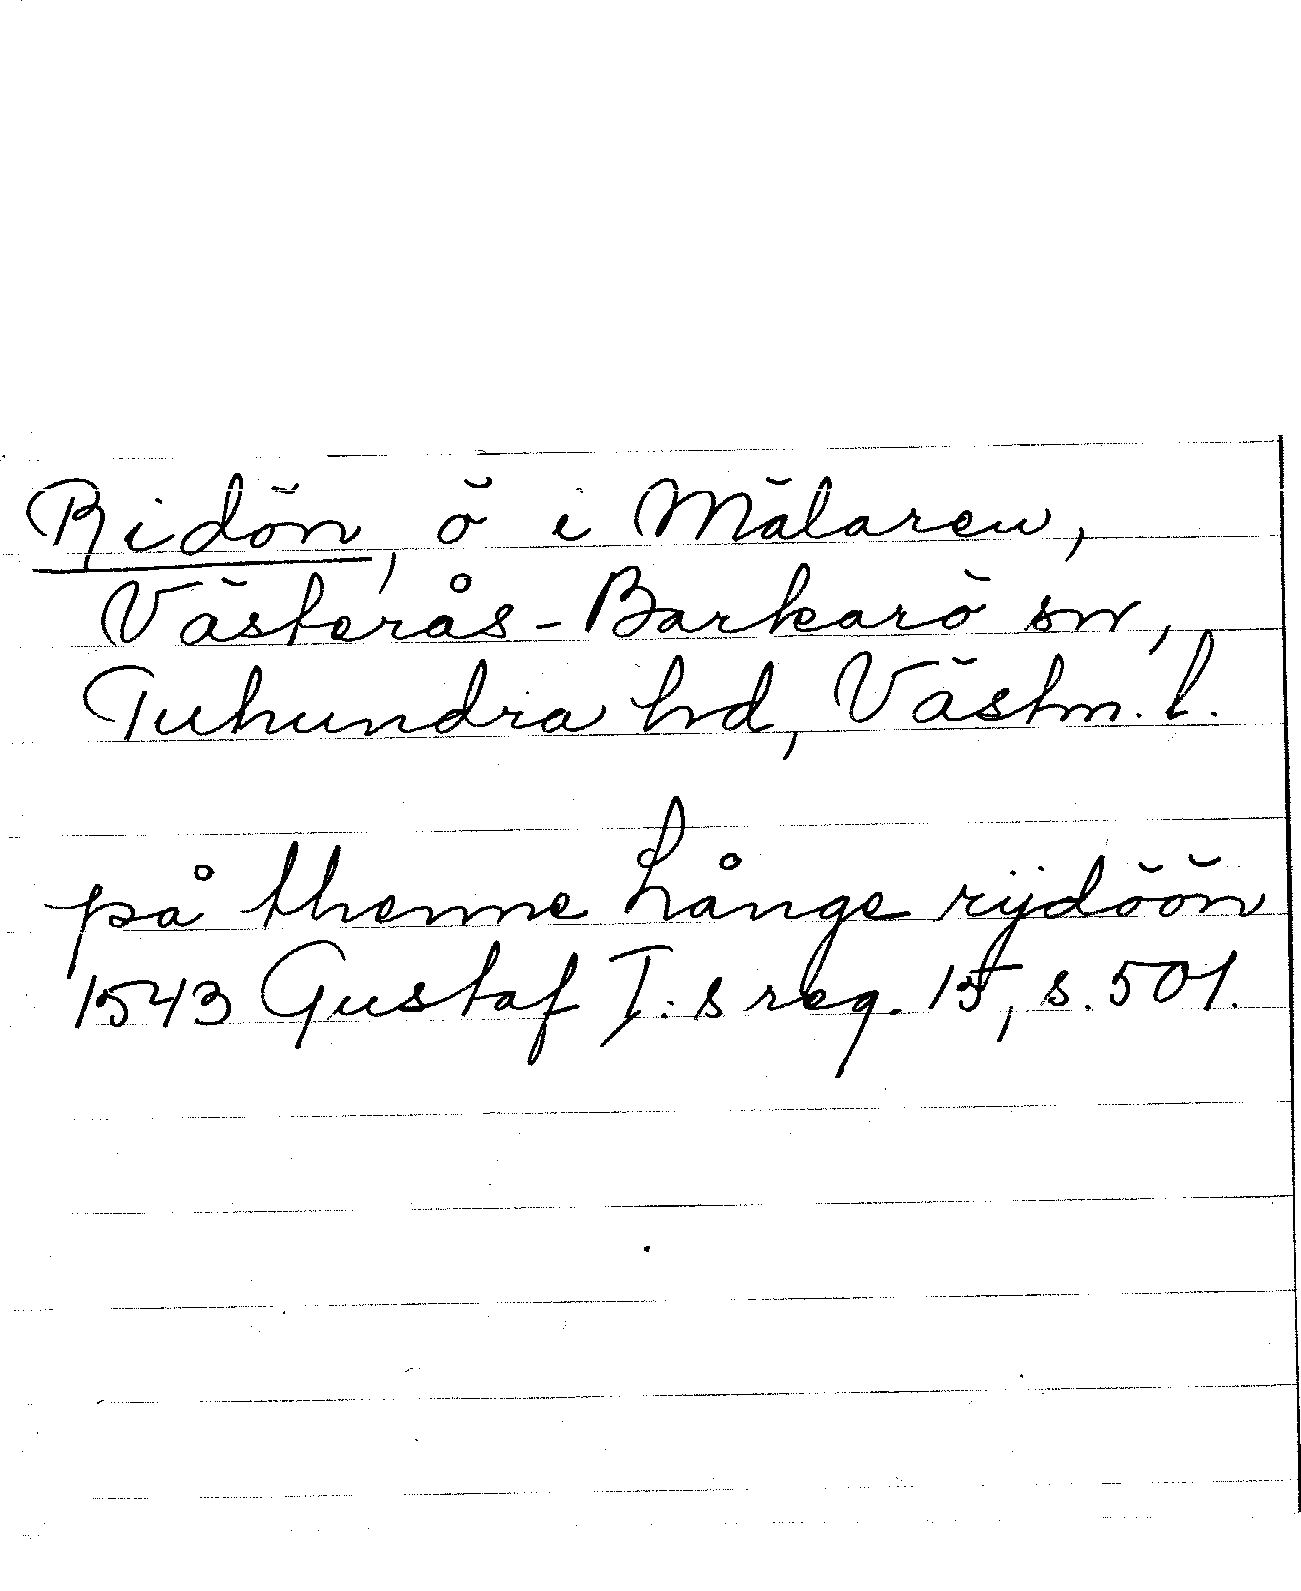 Ridön, ö i Mälaren,
Västerås-Barkarö sn,
Tuhundra hd, Västm. l.
på thenne Långe rijdöön
1543 Gustaf I:s reg. 15, s. 501.